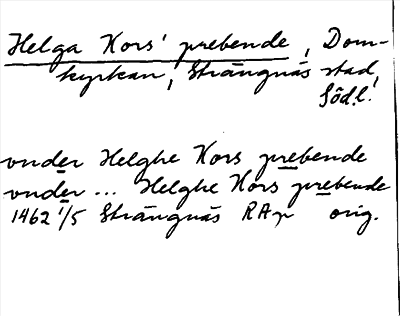 Helga Kors' prebende, Dom-
kyrkan, Strängnäs stad,
Södl.
vnder Helghe Kors prebende
vnder ... Helghe Kors prebende
1462 1/5 Strängnäs RAp orig.